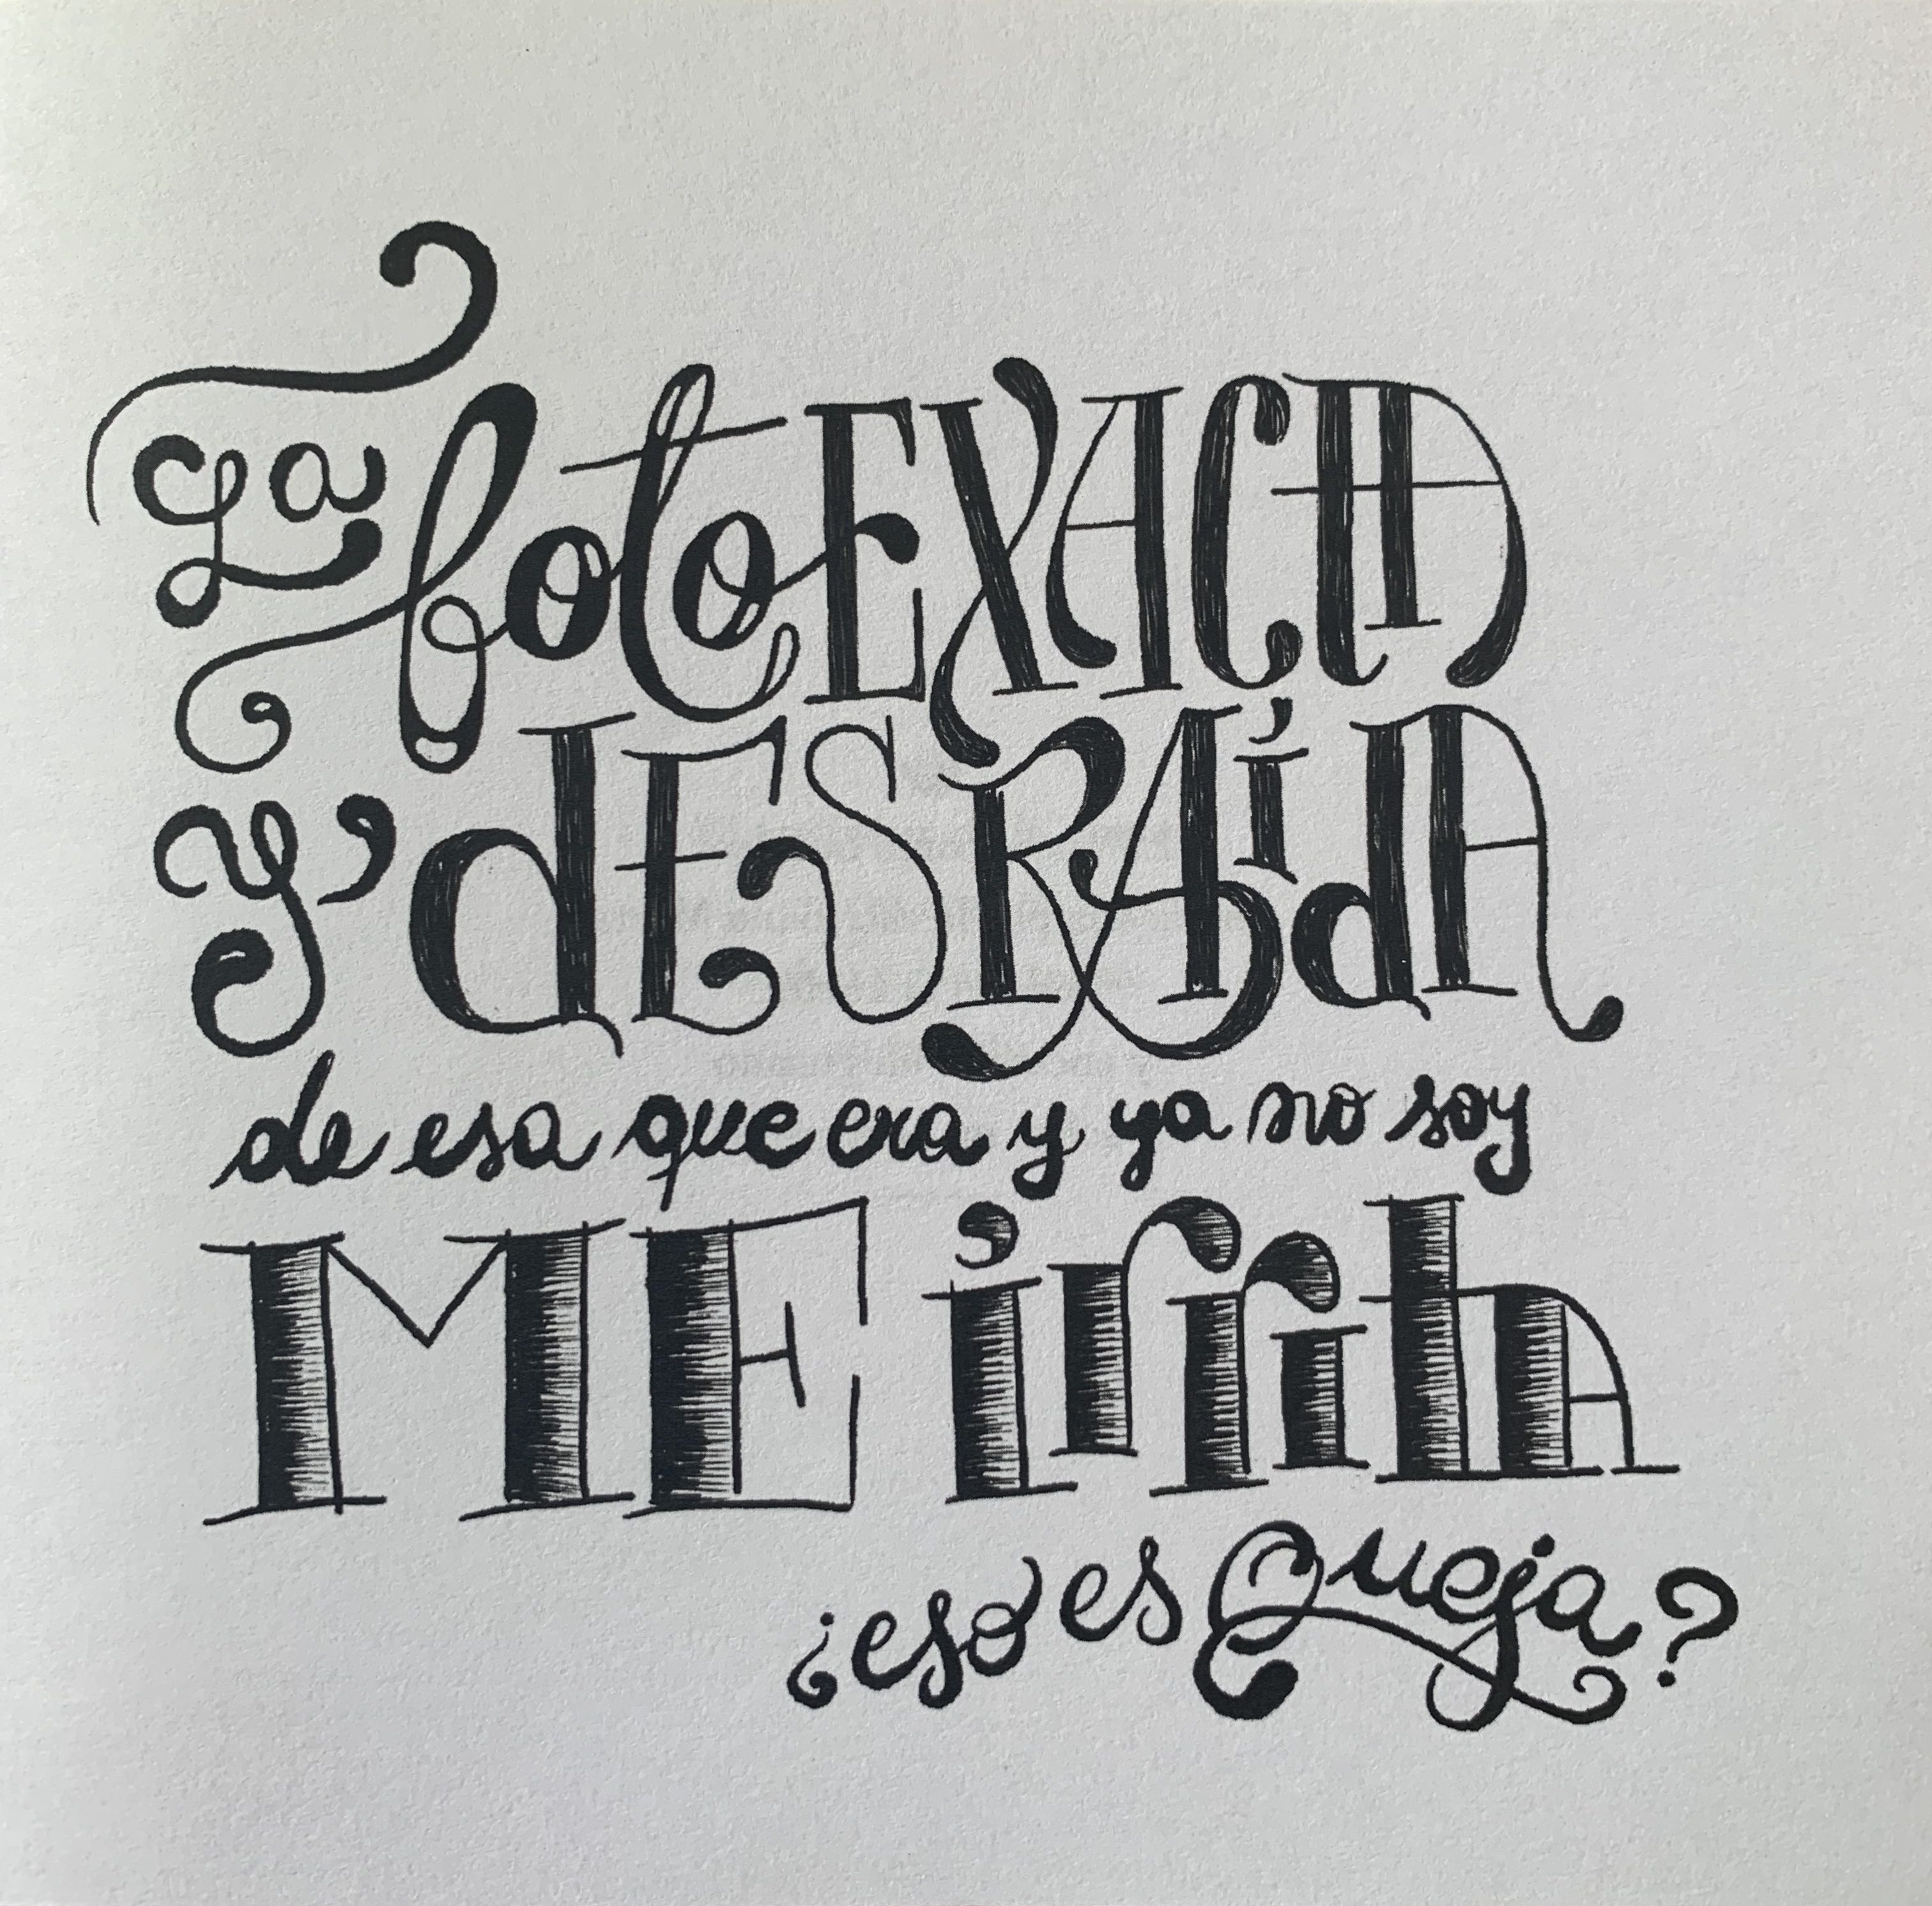 La foto EXACtA
y dESRAídA
de esa que era y ya no soy
ME irritA
¿eso es Queja?